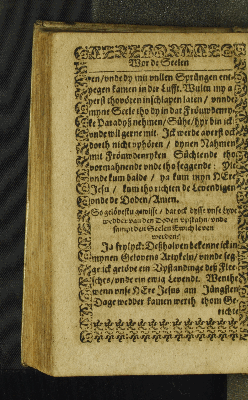 Vor de Seelen
gen / vnde dy mit vullen Sprüngen ent-
yegen kamen in der Lufft. Wultu my a
uerst thovören inschlapen laten / vnnde
myne Seele tho dy in dat Fröuwdenry-
ke Paradyß nehmen / Sühe / hyr bin ick
vnde will gerne mit. Ick werde auerst ock
doch nicht vphören / dynen Nahmen
mit Fröuwdenryken Süchtende tho
vormahnende vnde tho seggende:
vnde kum balde / ya kum myn HEre
Jesu / kum tho richten de Levendigen
vnde de Doden / Amen.
So gelövestu gewisse / dat ock dysse vnse Lyue
wedder van den Doden vpstahn / vnde
sampt den Seelen Ewich leven
werden?
Ja frylyck: Deßhalven bekenne ick in
mynen Gelovens Artykeln / vnnde seg-
ge ick gelöve ein Vpstandinge des Fle-
sches / vnde ein ewig Levendt. Wente
wenn vnse HEre Jesus am Jüngsten
Dage wedder kamen werth thom Ge-
richte